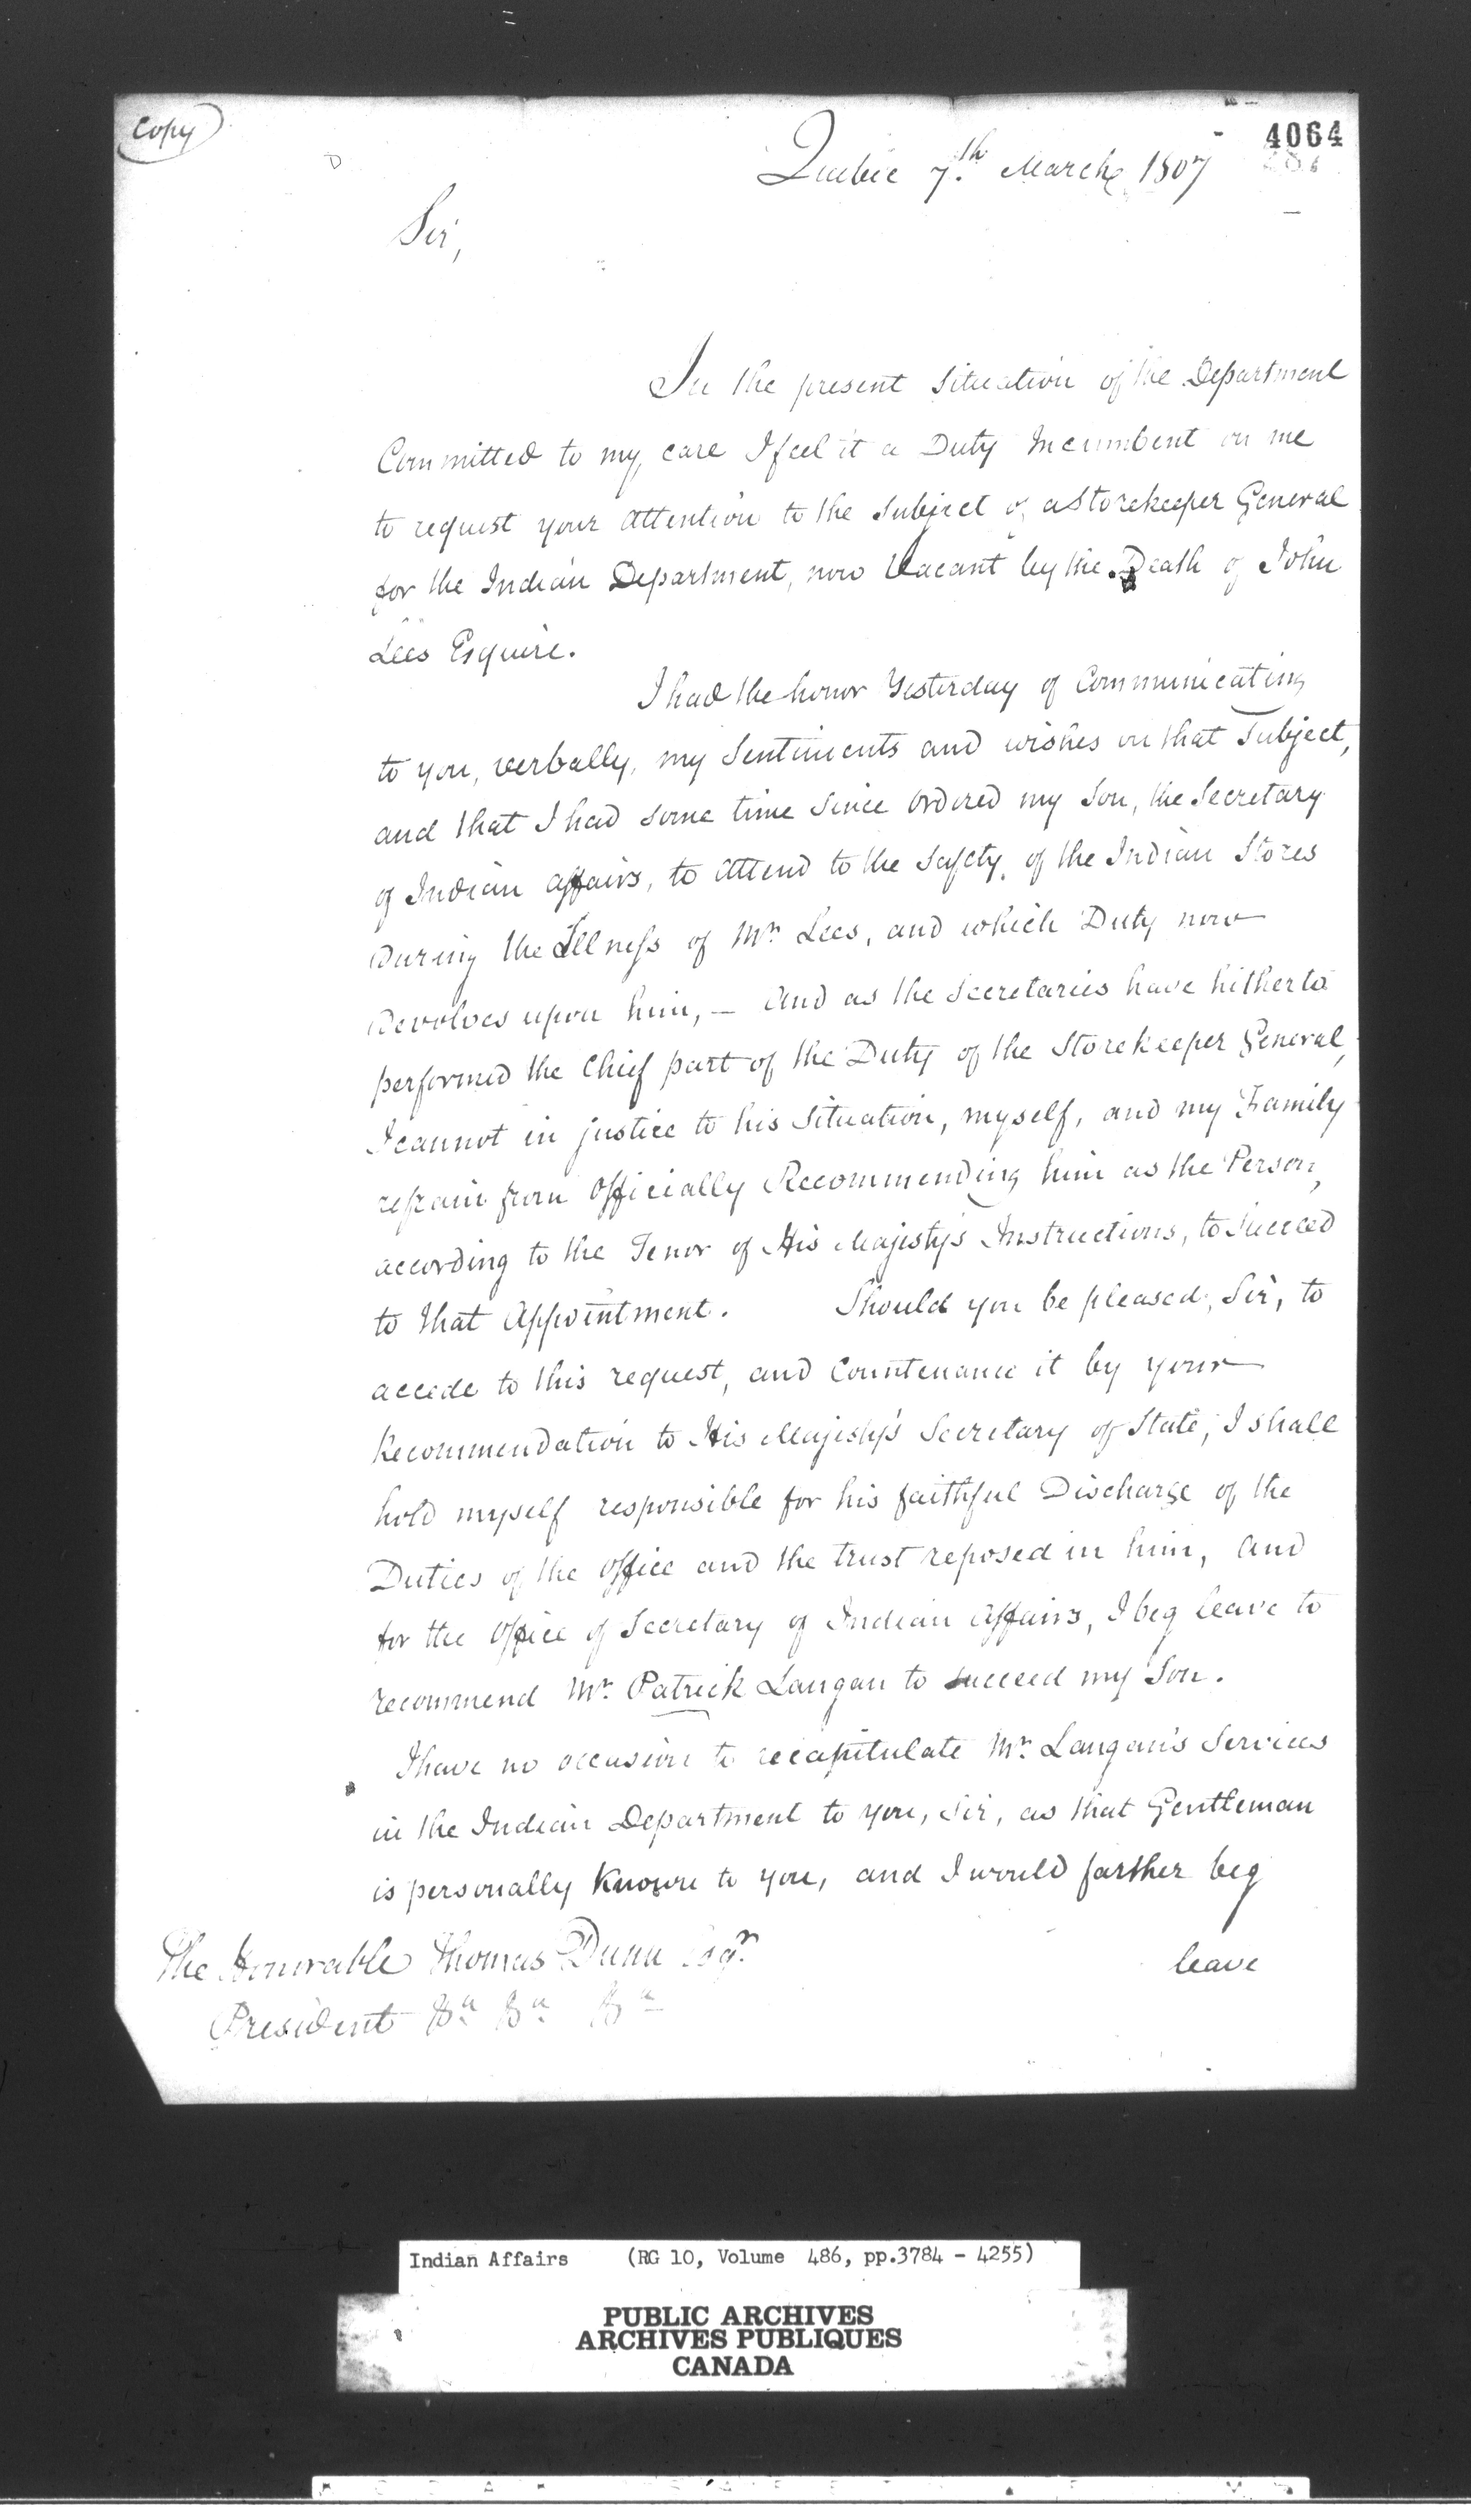 Copy
4064
Quebec 7.th March 1807
Sir,
In the present Situation of the Department
Committed to my care I feel it a Duty Incumbent on me
to request your Attention to the Subject of a Storekeeper General
for the Indian Department, now Vacant by the Death of John
Lees Esquire.
I had the honor Yesterday of Communicating
to you, verbally, my Sentiments and wishes on that Subject,
and that I had some time since Ordered my Son, the Secretary
of Indian affairs, to Attend to the Safety of the Indian Stores
During the Illness of Mr. Lees, and which Duty now
Devolves upon him, — And as the Secretaries have hitherto
performed the Chief part of the Duty of the Storekeeper General,
I cannot in justice to his Situation, myself, and my Family
refrain from Officially Recommending him as the Person,
according to the Tenor of His Majesty's Instructions, to Succeed
to that Appointment. Should you be pleased, Sir, to
accede to this request, and Countenance it by your
Recommendation to His Majesty's Secretary of State, I shall
hold myself responsible for his faithful Discharge of the
Duties of the Office and the trust reposed in him, And
for the Office of Secretary of Indian Affairs, I beg leave to
recommend Mr. Patrick Langan to succeed my Son.
I have no occasion to recapitulate Mr. Langan's Services
in the Indian Department to you, Sir, as that Gentleman
is personally Known to you, and I would farther beg
leave
The Honorable Thomas Dunn Esqr.
President &a &a &a
Indian Affairs (RG 10, Volume 486, pp.3784 - 4255)
PUBLIC ARCHIVES
ARCHIVES PUBLIQUES
CANADA